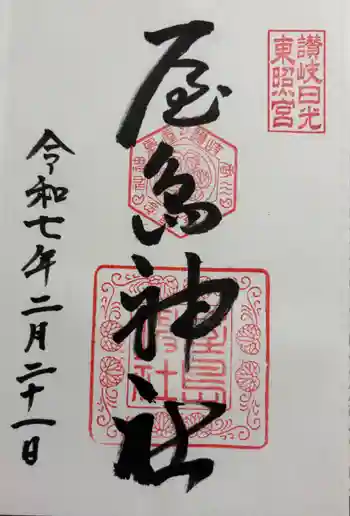 讃岐日光
東照宮
屋島神社
令和七年二月二十一日
屋島
神社